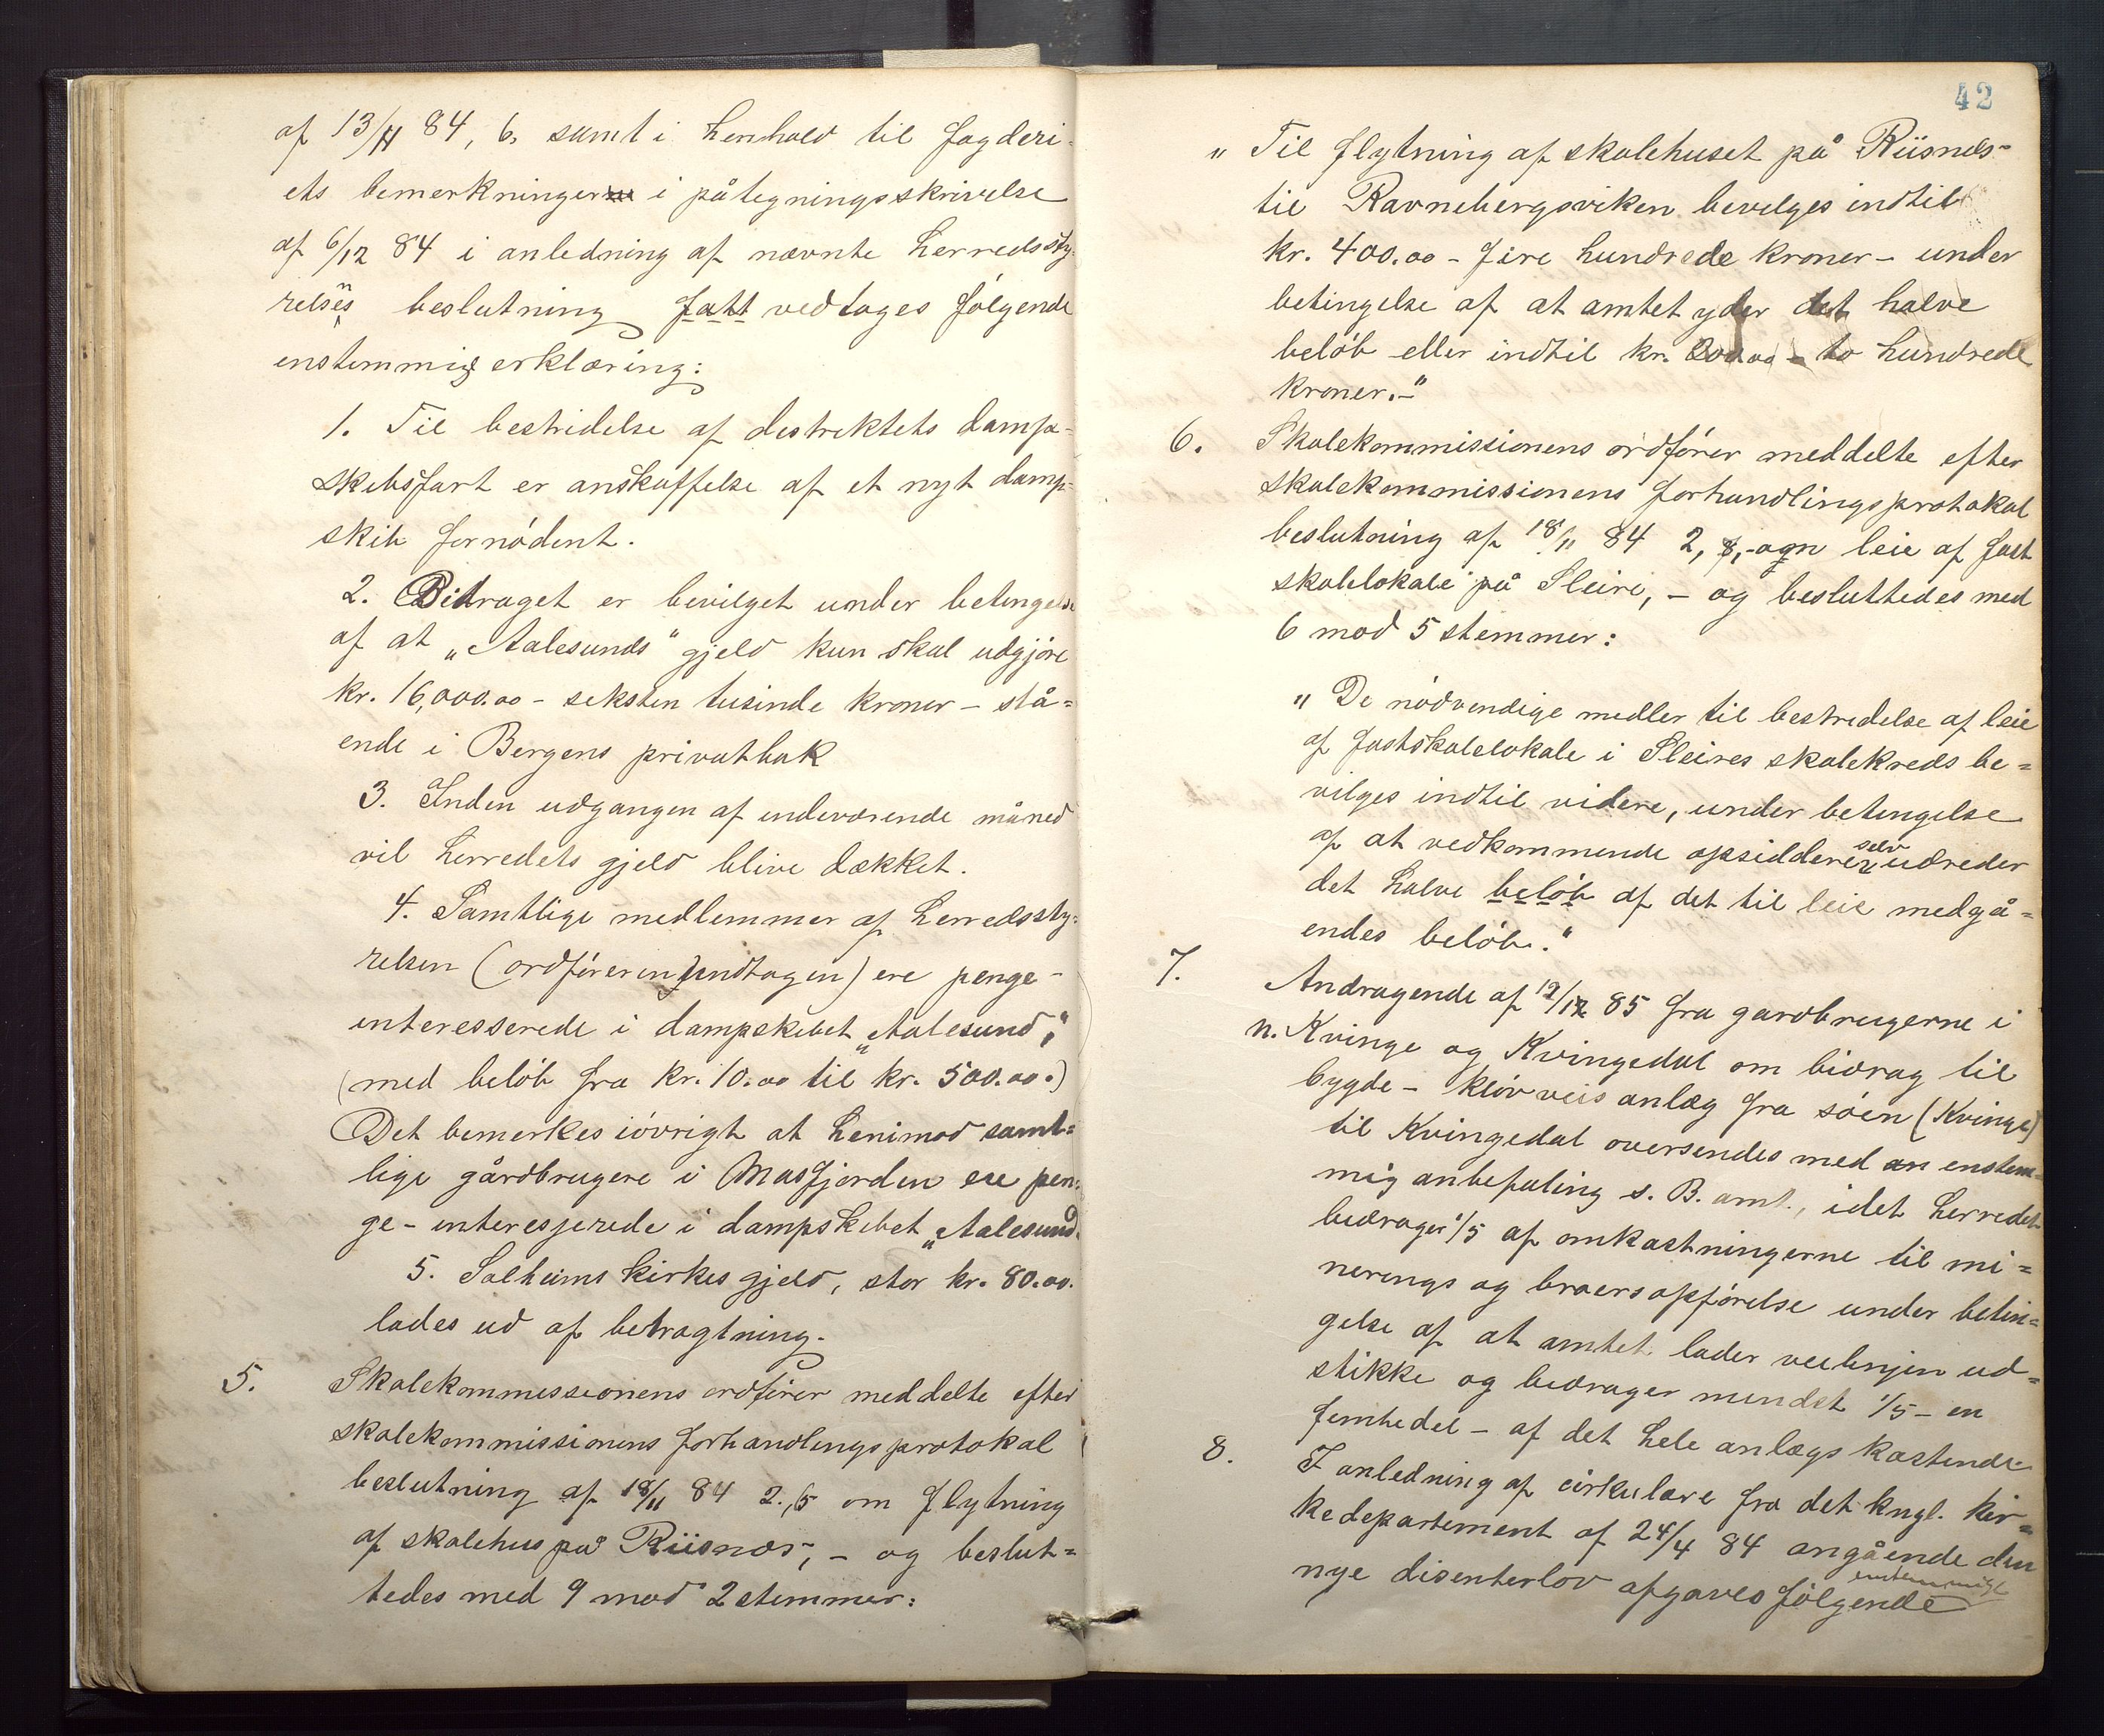 af 13/11 84, 6. samt i henhold til fogderi-
ets bemerkninger i påtegningsskrivelse
af 6/12 84 i anledning af nævnte herredssty-
relses beslutning fatt vedtages følgende
enstemmig erklæring:
1. Til bestridelse af destriktets damp-
skibsfart er anskaffelse af et nyt damp-
skib fornødent.
2. Bidraget er bevilget under betingelse
af at „Aalesunds" gjeld kun skal udgjøre
kr. 16,000.00 - seksten tusinde kroner - stå=
ende i Bergens privatbak
3. Inden udgangen af indeværende måned
vil herredets gjeld blive dækket.
4. Samtlige medlemmer af herredssty=
relsen (ordføreren undtagen) ere penge-
interesserede i dampskibet „Aalesund",
(med beløb fra kr. 10.00 til kr. 500.00.)
Det bemerkes iøvrigt at henimod samt=
lige gårdbrugere i Masfjorden ere pen=
ge-interesserede i dampskibet „Aalesund.
5. Solheims kirkes gjeld, stor kr. 80.00.
lades ud af betragtning.
5. Skolekommissionens ordfører meddelte efter
skolekommissionens forhandlingsprotokol
beslutning af 18/11 84 2., 5 om flytning
af skolehus på Riisnæs, - og beslut=
tedes med 9 mod 2 stemmer:
42
„ Til flytning af skolehuset på Riisnæs-
til Ravnebergsviken bevilges indtil
kr. 400.00 - fire hundrede kroner - under
betingelse af at amtet yder det halve
beløb eller indtil kr. 200.00 - to hundrede
kroner.-"
6. Skolekommissionens ordfører meddelte efter
skolekommissionens forhandlingsprotokol
beslutning af 18/11 84 2, leie af fast
skolelokale på Sleire, - og besluttedes med
6 mod 5 stemmer:
„ De nødvendige medler til bestridelse af leie
af fastskolelokale i Sleires skolekreds be=
vilges indtil videre, under betingelse
af at vedkommende opsiddere selv udreder
det halve beløb af det til leie medgå=
endes beløb."
7. Andragende af 19/12 85 fra gardbrugerne i
n. Kvinge og Kvingedal om bidrag til
bygde- kløvveis anlæg fra søen (Kvinge)
til Kvingedal oversendes med en enstem=
mig anbefaling s. B. amt., idet herredet
bidrager 1/5 af omkostningerne til mi=
nerings og broersopførelse under betin=
gelse af at amtet lader veilinjen ud=
stikke og bidrager mindst 1/5 - en
femtedel - af det hele anlægs kostende.
8. I anledning af cirkulære fra det kngl. kir=
kedepartement af 24/4 84 angående den
nye disenterlov afgaves følgende enstemmige